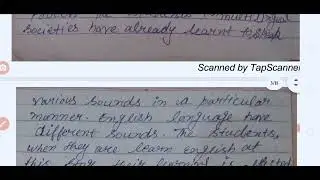 societies have already learnt to speak
Scanned by TapScanner
3/8
various sounds in a particular
manner. English language have
different sounds. The students,
when they are learn english at
this stage their learning is